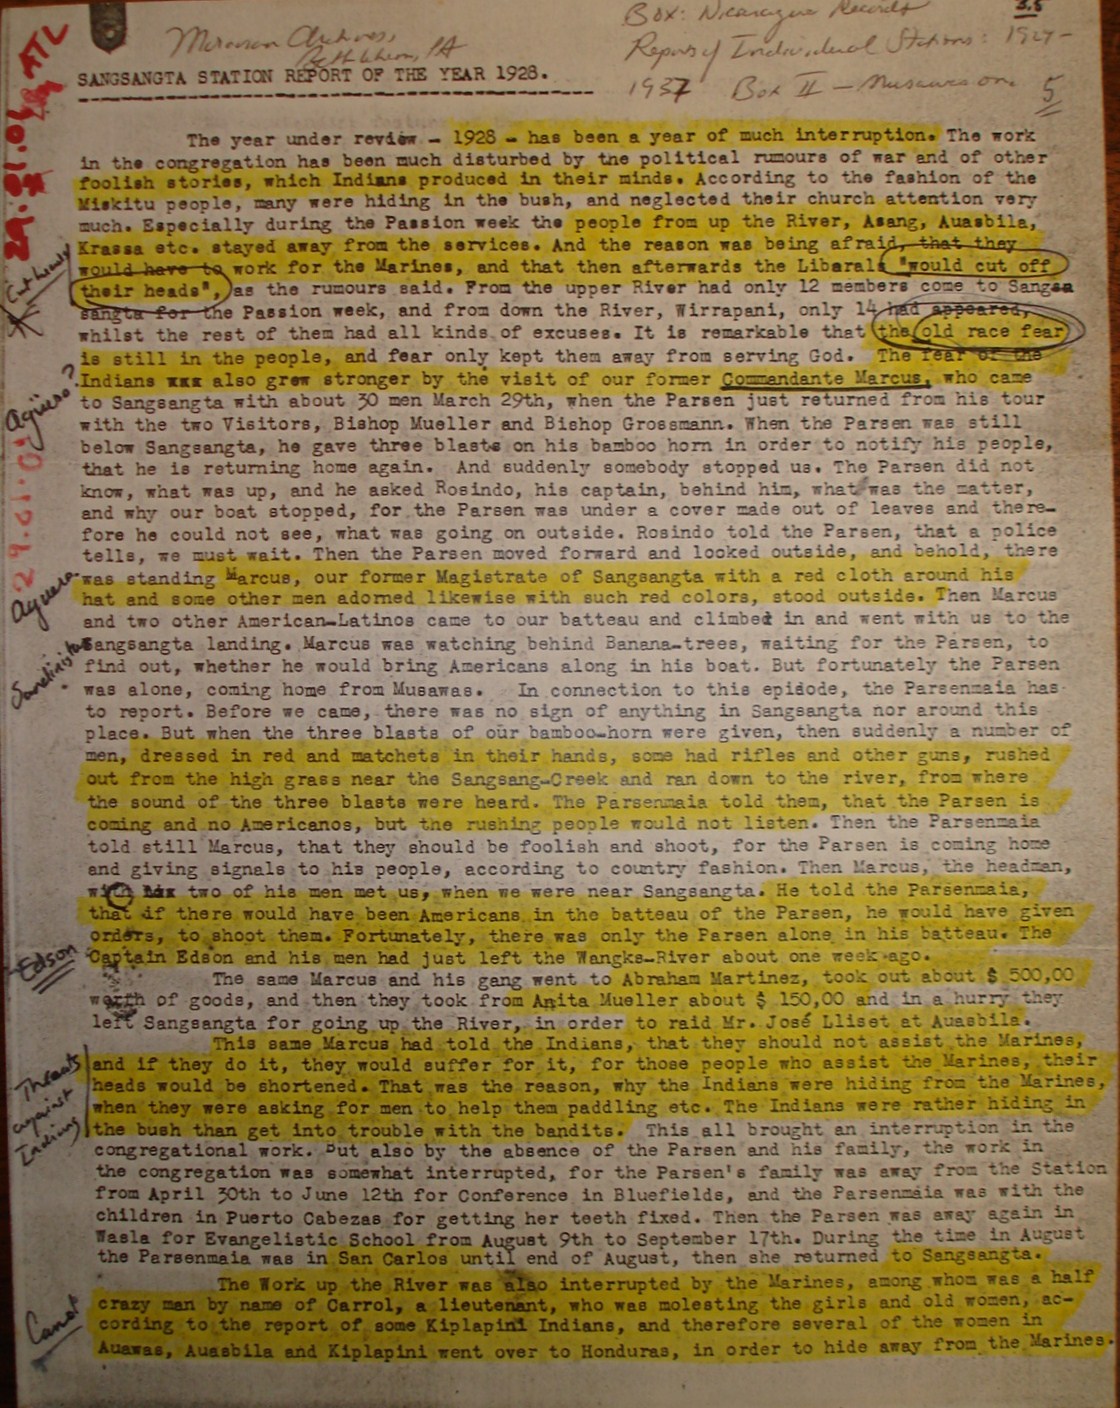 Moravian Archives,
Bethlehem, PA
Box: Nicaragua Records
Reports of Individual Stations: 1927-
1937 Box II — Musawas on.
5
SANGSANGTA STATION REPORT OF THE YEAR 1928.
The year under review - 1928 - has been a year of much interruption. The work
in the congregation has been much disturbed by the political rumours of war and of other
foolish stories, which Indians produced in their minds. According to the fashion of the
Miskitu people, many were hiding in the bush, and neglected their church attention very
much. Especially during the Passion week the people from up the River, Asang, Auasbila,
Krassa etc. stayed away from the services. And the reason was being afraid, that they
would have to work for the Marines, and that then afterwards the Liberals "would cut off
their heads", as the rumours said. From the upper River had only 12 members come to Sangsa
sangta for the Passion week, and from down the River, Wirrapani, only 14 had appeared,
whilst the rest of them had all kinds of excuses. It is remarkable that the old race fear
is still in the people, and fear only kept them away from serving God. The fear of the
Indians xxx also grew stronger by the visit of our former Commandante Marcus, who came
to Sangsangta with about 30 men March 29th, when the Parsen just returned from his tour
with the two Visitors, Bishop Mueller and Bishop Grossmann. When the Parsen was still
below Sangsangta, he gave three blasts on his bamboo horn in order to notify his people,
that he is returning home again. And suddenly somebody stopped us. The Parsen did not
know, what was up, and he asked Rosindo, his captain, behind him, what was the matter,
and why our boat stopped, for the Parsen was under a cover made out of leaves and there-
fore he could not see, what was going on outside. Rosindo told the Parsen, that a police
tells, we must wait. Then the Parsen moved forward and looked outside, and behold, there
was standing Marcus, our former Magistrate of Sangsangta with a red cloth around his
hat and some other men adorned likewise with such red colors, stood outside. Then Marcus
and two other American-Latinos came to our batteau and climbed in and went with us to the
Sangsangta landing. Marcus was watching behind Banana-trees, waiting for the Parsen, to
find out, whether he would bring Americans along in his boat. But fortunately the Parsen
was alone, coming home from Musawas. In connection to this episode, the Parsenmaia has
to report. Before we came, there was no sign of anything in Sangsangta nor around this
place. But when the three blasts of our bamboo-horn were given, then suddenly a number of
men, dressed in red and matchets in their hands, some had rifles and other guns, rushed
out from the high grass near the Sangsang-Creek and ran down to the river, from where
the sound of the three blasts were heard. The Parsenmaia told them, that the Parsen is
coming and no Americanos, but the rushing people would not listen. Then the Parsenmaia
told still Marcus, that they should be foolish and shoot, for the Parsen is coming home
and giving signals to his people, according to country fashion. Then Marcus, the headman,
with two of his men met us, when we were near Sangsangta. He told the Parsenmaia,
that if there would have been Americans in the batteau of the Parsen, he would have given
orders, to shoot them. Fortunately, there was only the Parsen alone in his batteau. The
Captain Edson and his men had just left the Wangks-River about one week ago.
The same Marcus and his gang went to Abraham Martinez, took out about $ 500,00
worth of goods, and then they took from Anita Mueller about $ 150,00 and in a hurry they
left Sangsangta for going up the River, in order to raid Mr. José Lliset at Auasbila.
This same Marcus had told the Indians, that they should not assist the Marines,
and if they do it, they would suffer for it, for those people who assist the Marines, their
heads would be shortened. That was the reason, why the Indians were hiding from the Marines,
when they were asking for men to help them paddling etc. The Indians were rather hiding in
the bush than get into trouble with the bandits. This all brought an interruption in the
congregational work. But also by the absence of the Parsen and his family, the work in
the congregation was somewhat interrupted, for the Parsen's family was away from the Station
from April 30th to June 12th for Conference in Bluefields, and the Parsenmaia was with the
children in Puerto Cabezas for getting her teeth fixed. Then the Parsen was away again in
Wasla for Evangelistic School from August 9th to September 17th. During the time in August
the Parsenmaia was in San Carlos until end of August, then she returned to Sangsangta.
The Work up the River was also interrupted by the Marines, among whom was a half
crazy man by name of Carrol, a lieutenant, who was molesting the girls and old women, ac-
cording to the report of some Kiplapini Indians, and therefore several of the women in
Auawas, Auasbila and Kiplapini went over to Honduras, in order to hide away from the Marines.
Cut heads
Agüero?
Aguera
Sandinistas
Edson
Threats
against
Indians